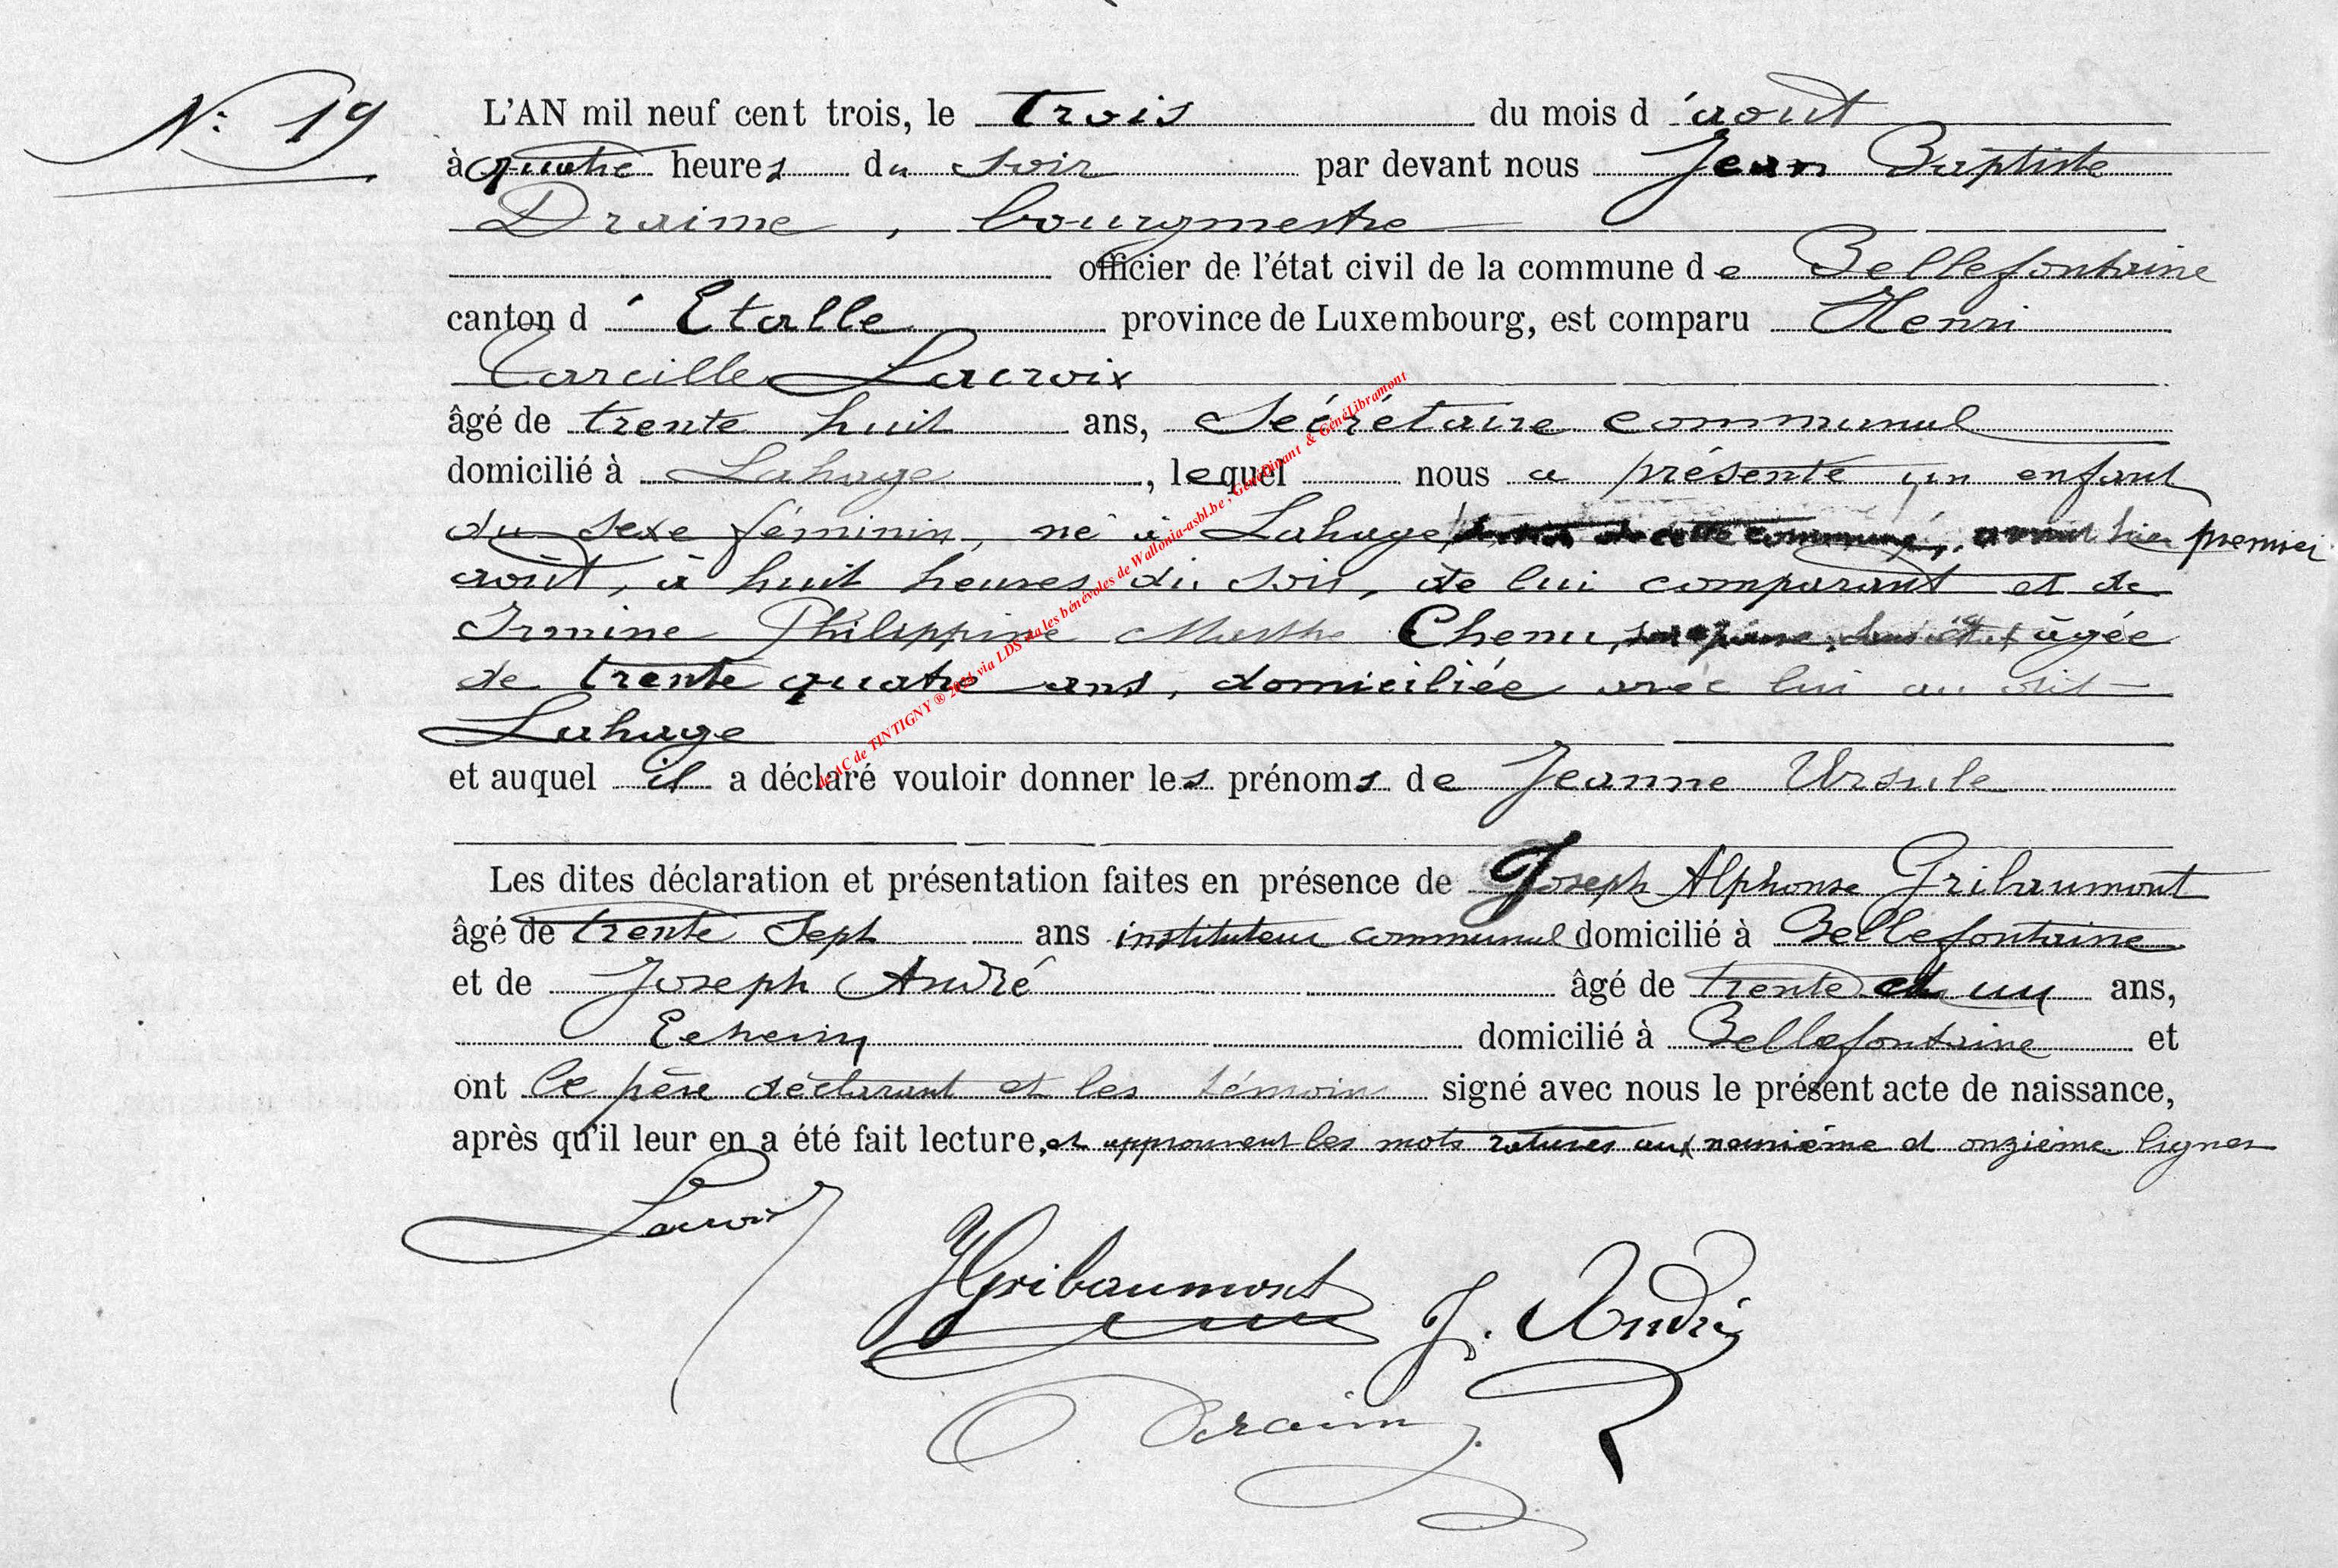 N° 19
L'AN mil neuf cent trois, le trois du mois d'août
à quatre heures du soir par devant nous Jean Baptiste
Draime, bourgmestre
officier de l'état civil de la commune de Bellefontaine
canton d'Etalle province de Luxembourg, est comparu Henri
Tarcille Lacroix
âgé de trente huit ans, Secrétaire communal
domicilié à Lahage, lequel nous a présenté un enfant
du sexe féminin, né à Lahage premier
août, à huit heures du soir, de lui comparant et de
Irmine Philippine Marthe Chenu, âgée
de trente quatre ans, domiciliée avec lui au dit
Lahage
et auquel il a déclaré vouloir donner les prénoms de Jeanne Ursule
Les dites déclaration et présentation faites en présence de Joseph Alphonse Gribaumont
âgé de trente sept ans instituteur communal domicilié à Bellefontaine
et de Joseph André âgé de trente et un ans,
Echevin domicilié à Bellefontaine et
ont le père déclarant et les témoins signé avec nous le présent acte de naissance,
après qu'il leur en a été fait lecture, et approuvent les mots raturés aux neuvième et onzième lignes
Lacroix
JGribaumont J. André
Draime
de AC de TINTIGNY ® via LDS via les bénévoles de Wallonia-asbl.be, GénéDinant & GénéLibramont